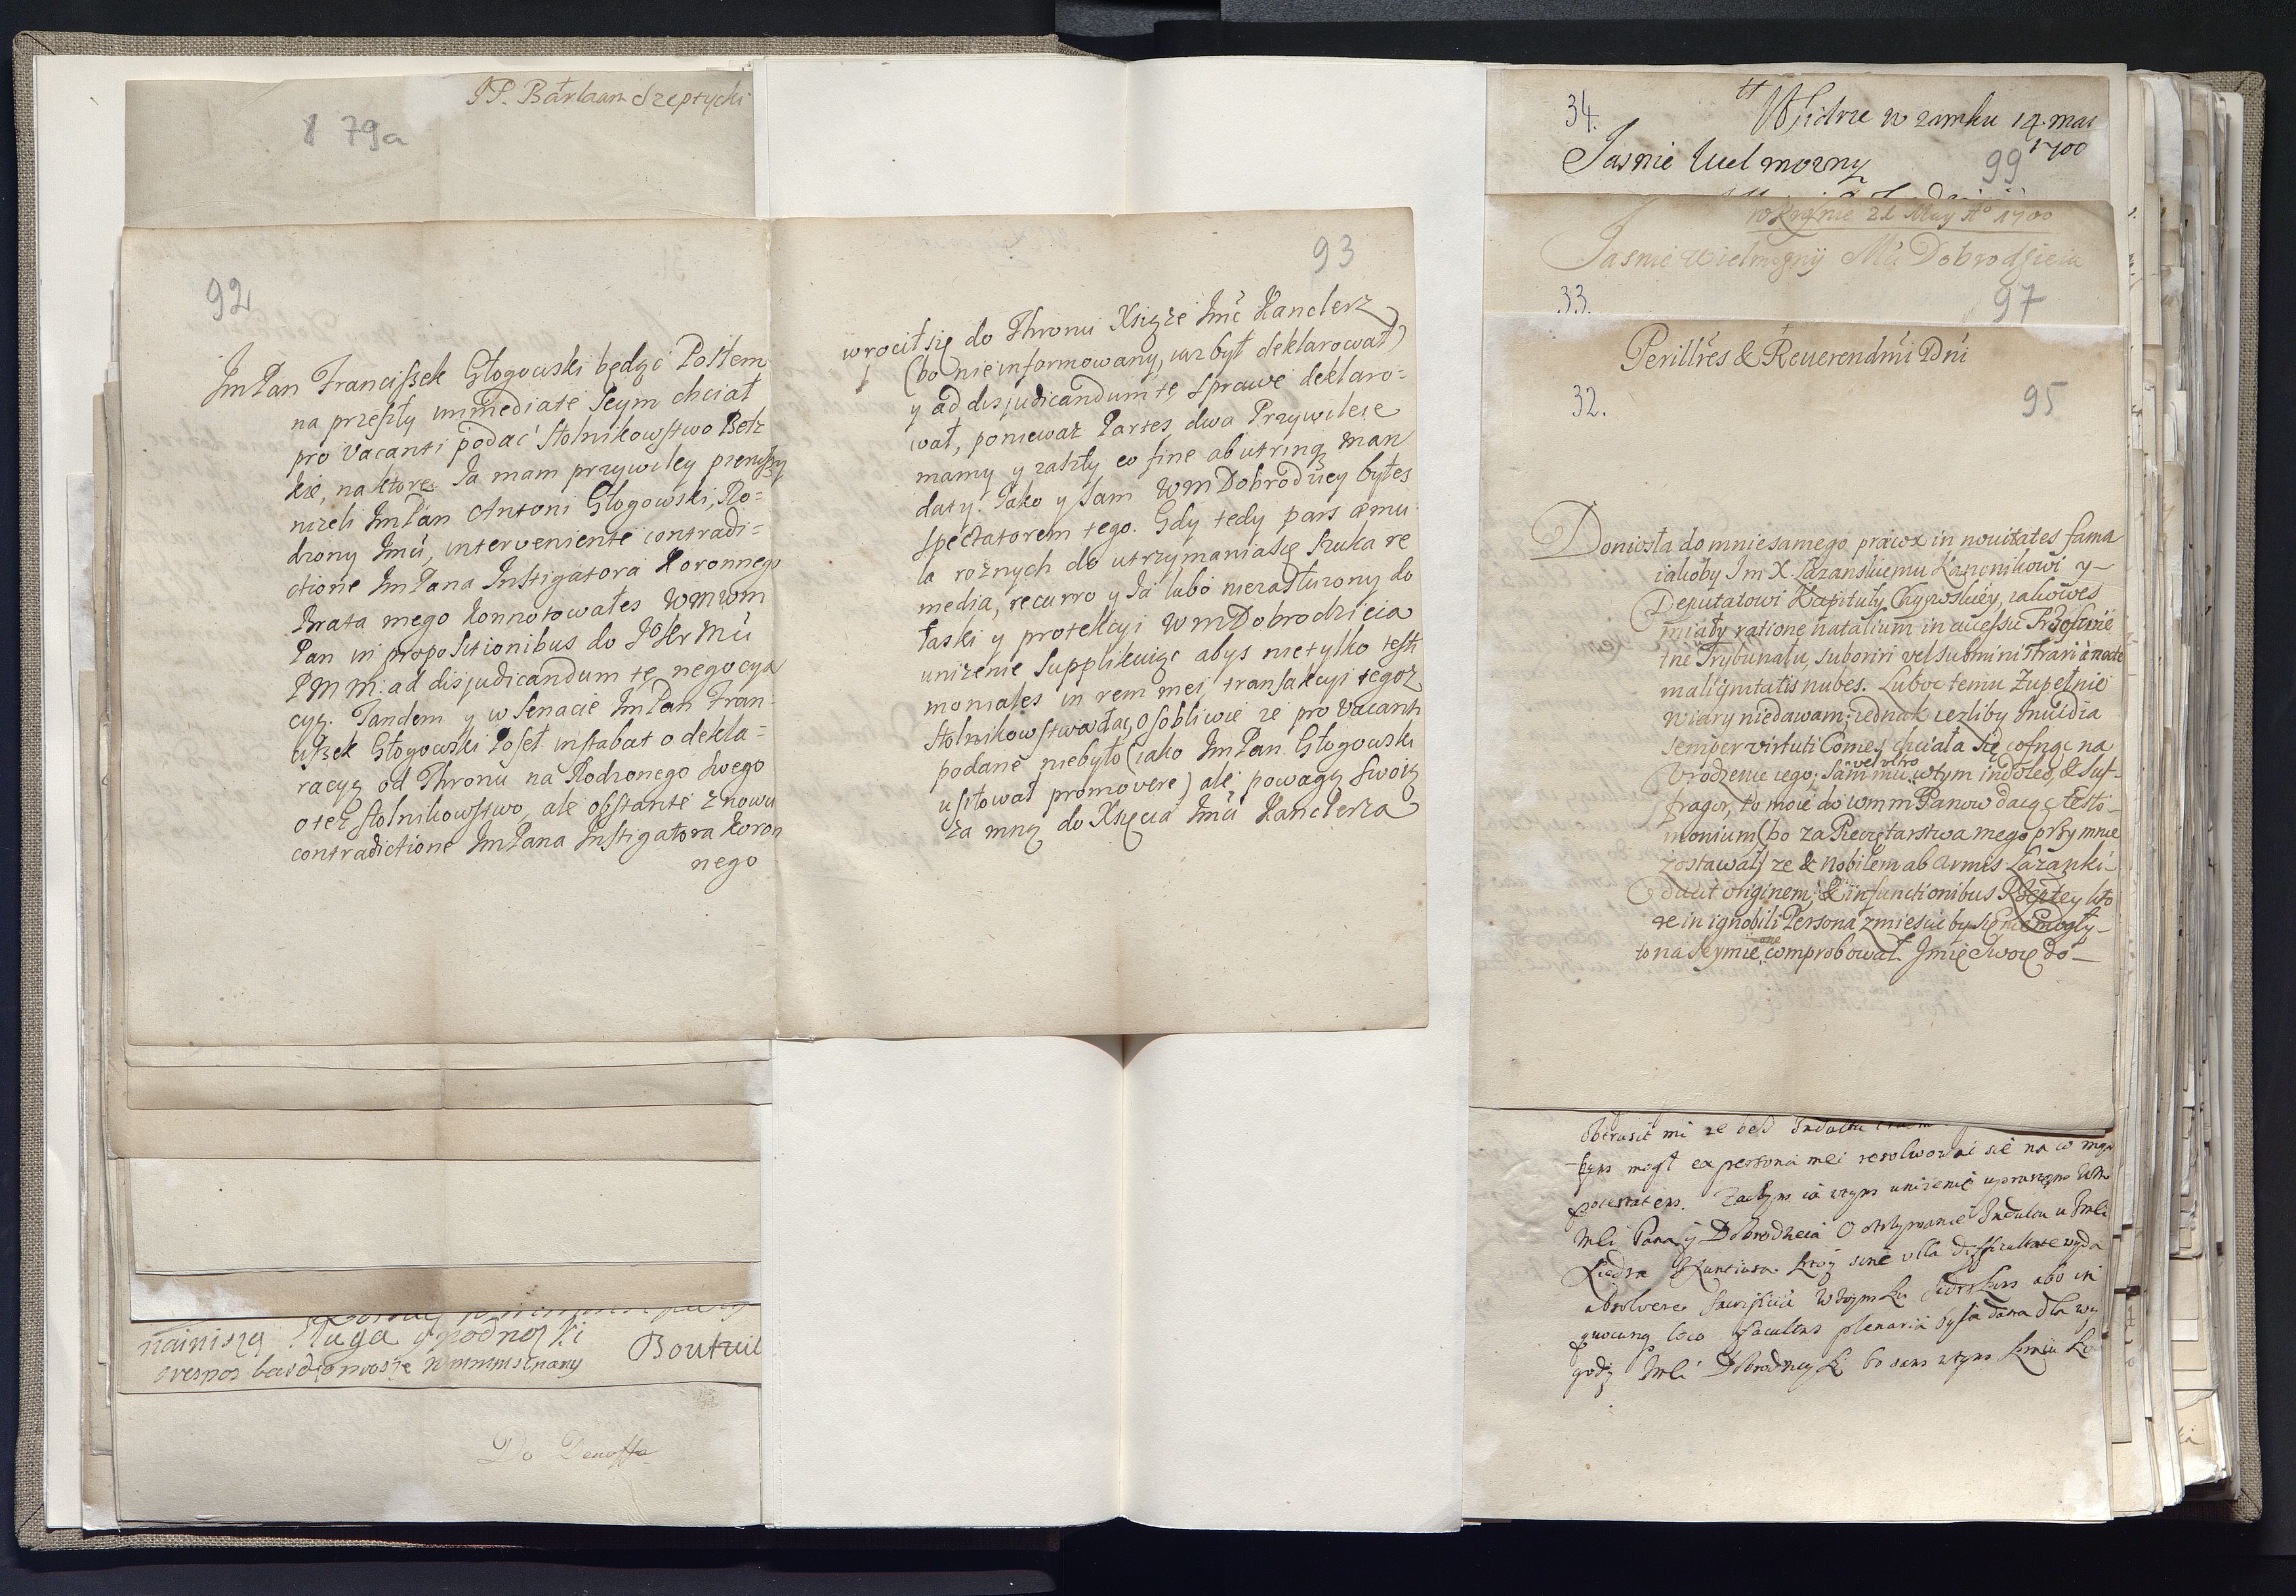 JP. Barlaam Szeptycki
79a
92
ImPan Franciszek Głogowski będąc Posłem
na przeszły immediate Seym chciał
pro vacanti podać Stolnikowstwo Bełz
kie, na ktore Ja mam przywiley pierwszy
niżeli ImPan Antoni Głogowski, Ro=
dzony Imci, interveniente contradi=
ctione ImPana Instigatora Koronnego
Brata mego konnotowałes WMWM
Pan in propositionibus do JoKrMci
PMM: ad disjudicandum tę negocya
cyą. Tandem y w Senacie ImPan Fran
ciszek Głogowski Poseł instabat o dekla=
racyą od Thronu na Rodzonego swego
o też stolnikowstwo, ale obstante znowu
contradictione ImPana Instigatora Koron
nego
93
wrocił się do Thronu Xsiąże Imć Kanclerz
(bo nieinformowany, iuz był deklarował)
y ad disjudicandum tę sprawę deklaro=
wał, ponieważ Partes dwa Przywileie
mamy y zaszły eo fine ab utrinq man
daty. Jako y sam WMDobrodziey byłes
spectatorem tego. Gdy tedy pars æmu
la rożnych do utrzymania się szuka re
media, recurro y Ja lubo niezasłużony do
łaski y protekcyi WMDobrodzieia
uniżenie supplikuiąc abys nietylko testi
moniales in rem mei, transakcyi tegoż
stolnikowstwa dać, osobliwie ze pro vacanti
podane niebyło (iako ImPan Głogowski
usiłował promovere) ale powagą swoią
za mną do Xsięcia Imci Kanclerza
nainiszą sługa y podnożki
Boutuil
Do Denoffa
34.
W Szidrze w zamku 14 mai
1700
99
Jasnie Wielmozny
w Krosnie 21 May Ao 1700
Jasnie Wielmożnÿ Mći Dobrodzieiu
33.
97
Perillres & Reverendmi Dni
32.
95
Doniosła do mnie samego praevix in novitates fama
iakoby Im X. Łazanskiemu Kanonikowi y
Deputatowi Kapituły Chyiowskiey, iakowes
miały ratione natalium in accessu
tne Trybunału, suboriri vel subministrari a nocte
malignitatis nubes. Luboc temu zupełnie
wiary niedawam; iednak iezliby Invidia
semper virtuti Comes, chciała się cofnąc na
vel ultro
Urodzenie iego; sam mu wtym indoles, & suf-
fragor, to moie do wmm Panow daiąc testi-
monium (bo za Pieczętarstwa mego przy mnie
zostawał) ze & nobilem ab armis Łazanki
ducit originem, & in functionibus Rzeptey kto
re in ignobili Persona zmiescic by się nie mogły
to na seymie comprobował. Imię swoie do
szys mogł ex persona mei resolwowac się na co
potestatem. Zaczym ia wtym unizenie upraszam WM
Mci Pana y Dobrodzieia O otrzymanie Indultu u Imci
Xiedza Nuntiusa ktoÿ sine ulla difficultate wyda
absolvere
quocunq loco facultas plenaria była dana dla wy
gody Imci Dobrodzieÿ